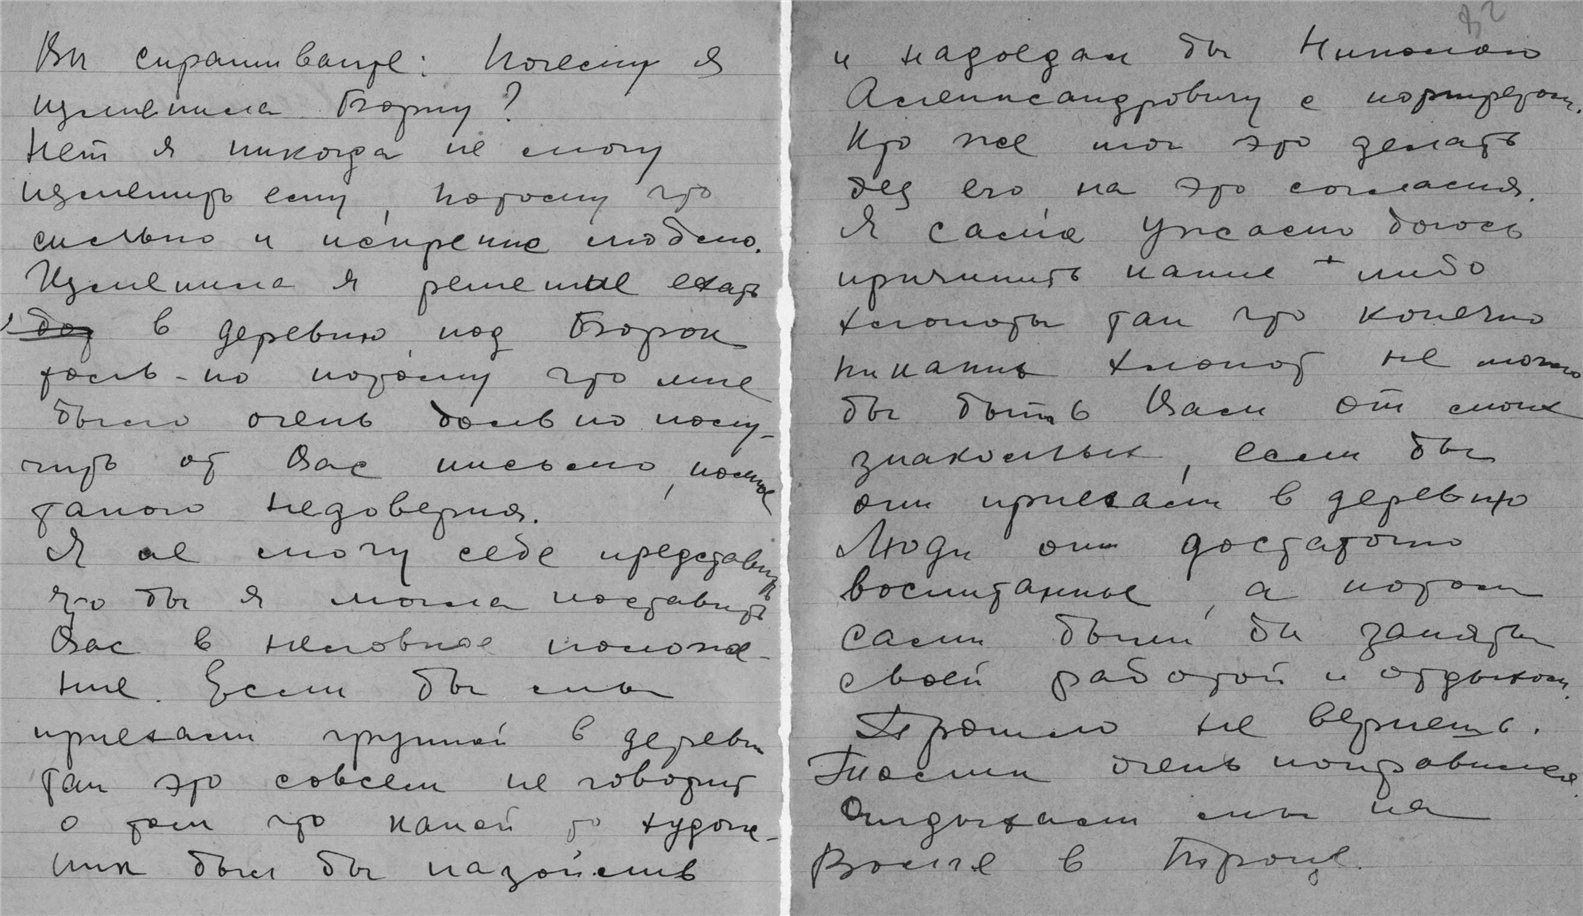 Вы спрашиваете: Почему я
изменила Борку?
Нет я никогда не смогу
изменить ему, потому что
сильно и искренне люблю.
Изменила я решение ехать
в деревню под Борок
только потому что мне
было очень больно полу-
чить от Вас письмо, после
такого недоверия.
Я не могу себе представить
что бы я могла поставить
Вас в неловкое положе-
ние. Если бы мы
приехали группой в деревн
так это совсем не говорит
о том что какой то худож-
ник был бы назойлив
и надоедал бы Николаю
Александровичу с портретом.
Кто же мог это делать
без его на это согласия.
Я сама ужасно боюсь
причинить какие-либо
хлопоты так что конечно
никаких хлопот не могло
бы быть Вам от моих
знакомых, если бы
они приехали в деревню
Люди они достаточно
воспитанные, а потом
сами были бы заняты
своей работой и отдыхом.
Прошло не вернешь.
очень понравился.
Отдыхали мы на
Волге в